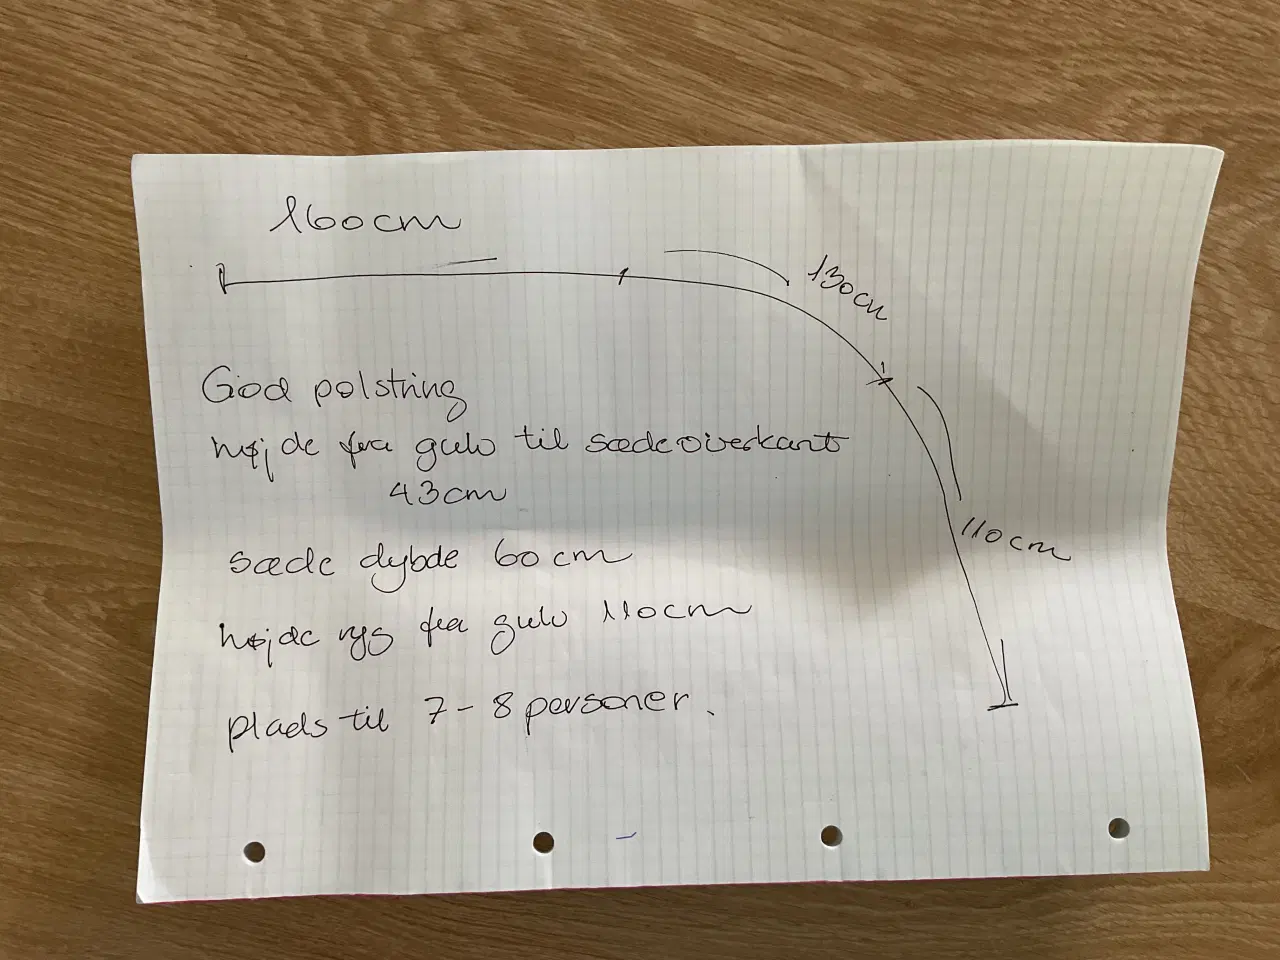 160cm
130cm
God polstring
højde fra gulv til sædeoverkant
43cm
110cm
sæde dybde 60cm
højde ryg fra gulv 110cm
plads til 7-8 personer.